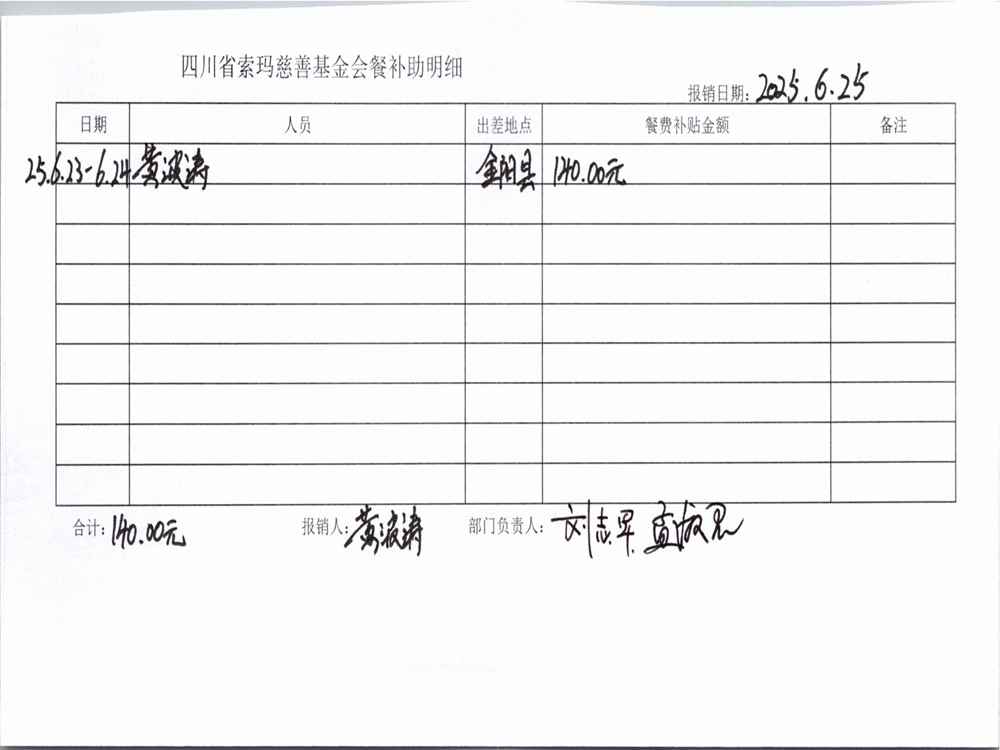 四川省索玛慈善基金会餐补助明细
报销日期: 2025.6.25
日期 人员 出差地点 餐费补贴金额 备注
25.6.23-6.24 黄波涛 金阳县 140.00元
合计: 140.00元 报销人: 黄波涛 部门负责人: 刘志军